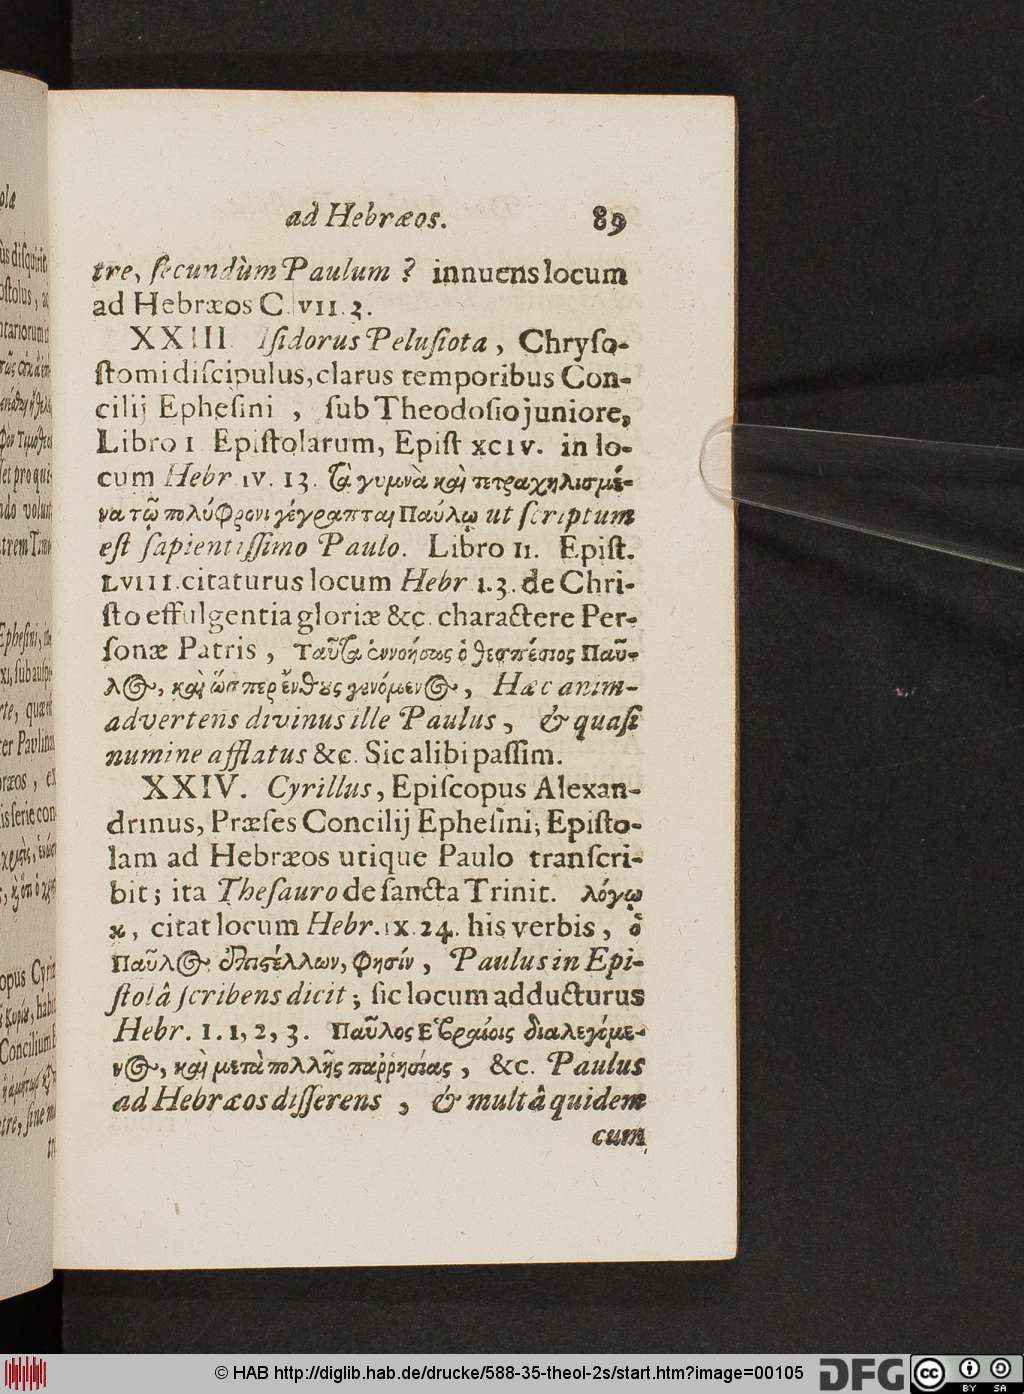 ad Hebræos. 89
tre, ſecundùm Paulum ? innuens locum
ad Hebræos C. VII. 3.
XXIII Iſidorus Peluſiota, Chryſo-
ſtomi diſcipulus, clarus temporibus Con-
cilij Epheſini , ſub Theodoſio juniore,
Libro I Epiſtolarum, Epiſt XCIV. in lo-
cum Hebr IV. 13. Τὰ γυμνὰ καὶ τετραχηλισμέ-
να τῷ πολύφρονι γέγραπται Παύλῳ ut ſcriptum
eſt ſapientiſſimo Paulo. Libro II. Epiſt.
LVIII. citaturus locum Hebr I. 3. de Chri-
ſto effulgentia gloriæ &c. charactere Per-
ſonæ Patris , Ταῦτα ἐννοήσας ὁ θεσπέσιος Παῦ-
λος, καὶ ὥσπερ ἔνθους γενόμενος, Hæc anim-
advertens divinus ille Paulus, & quaſi
numine afflatus &c. Sic alibi paſſim.
XXIV. Cyrillus, Epiſcopus Alexan-
drinus, Præſes Concilij Epheſini, Epiſto-
lam ad Hebræos utique Paulo tranſcri-
bit; ita Theſauro de ſancta Trinit. λόγῳ
κ, citat locum Hebr. IX. 24. his verbis, ὁ
Παῦλος ἐπιστέλλων, φησίν, Paulus in Epi-
ſtolâ ſcribens dicit; ſic locum adducturus
Hebr. I. 1, 2, 3. Παῦλος Ἑβραίοις διαλεγόμε-
νος, καὶ μετὰ πολλῆς παῤῥησίας, &c. Paulus
ad Hebræos diſſerens, & multâ quidem
cum
© HAB http://diglib.hab.de/drucke/588-35-theol-2s/start.htm?image=00105
DFG
cc BY SA